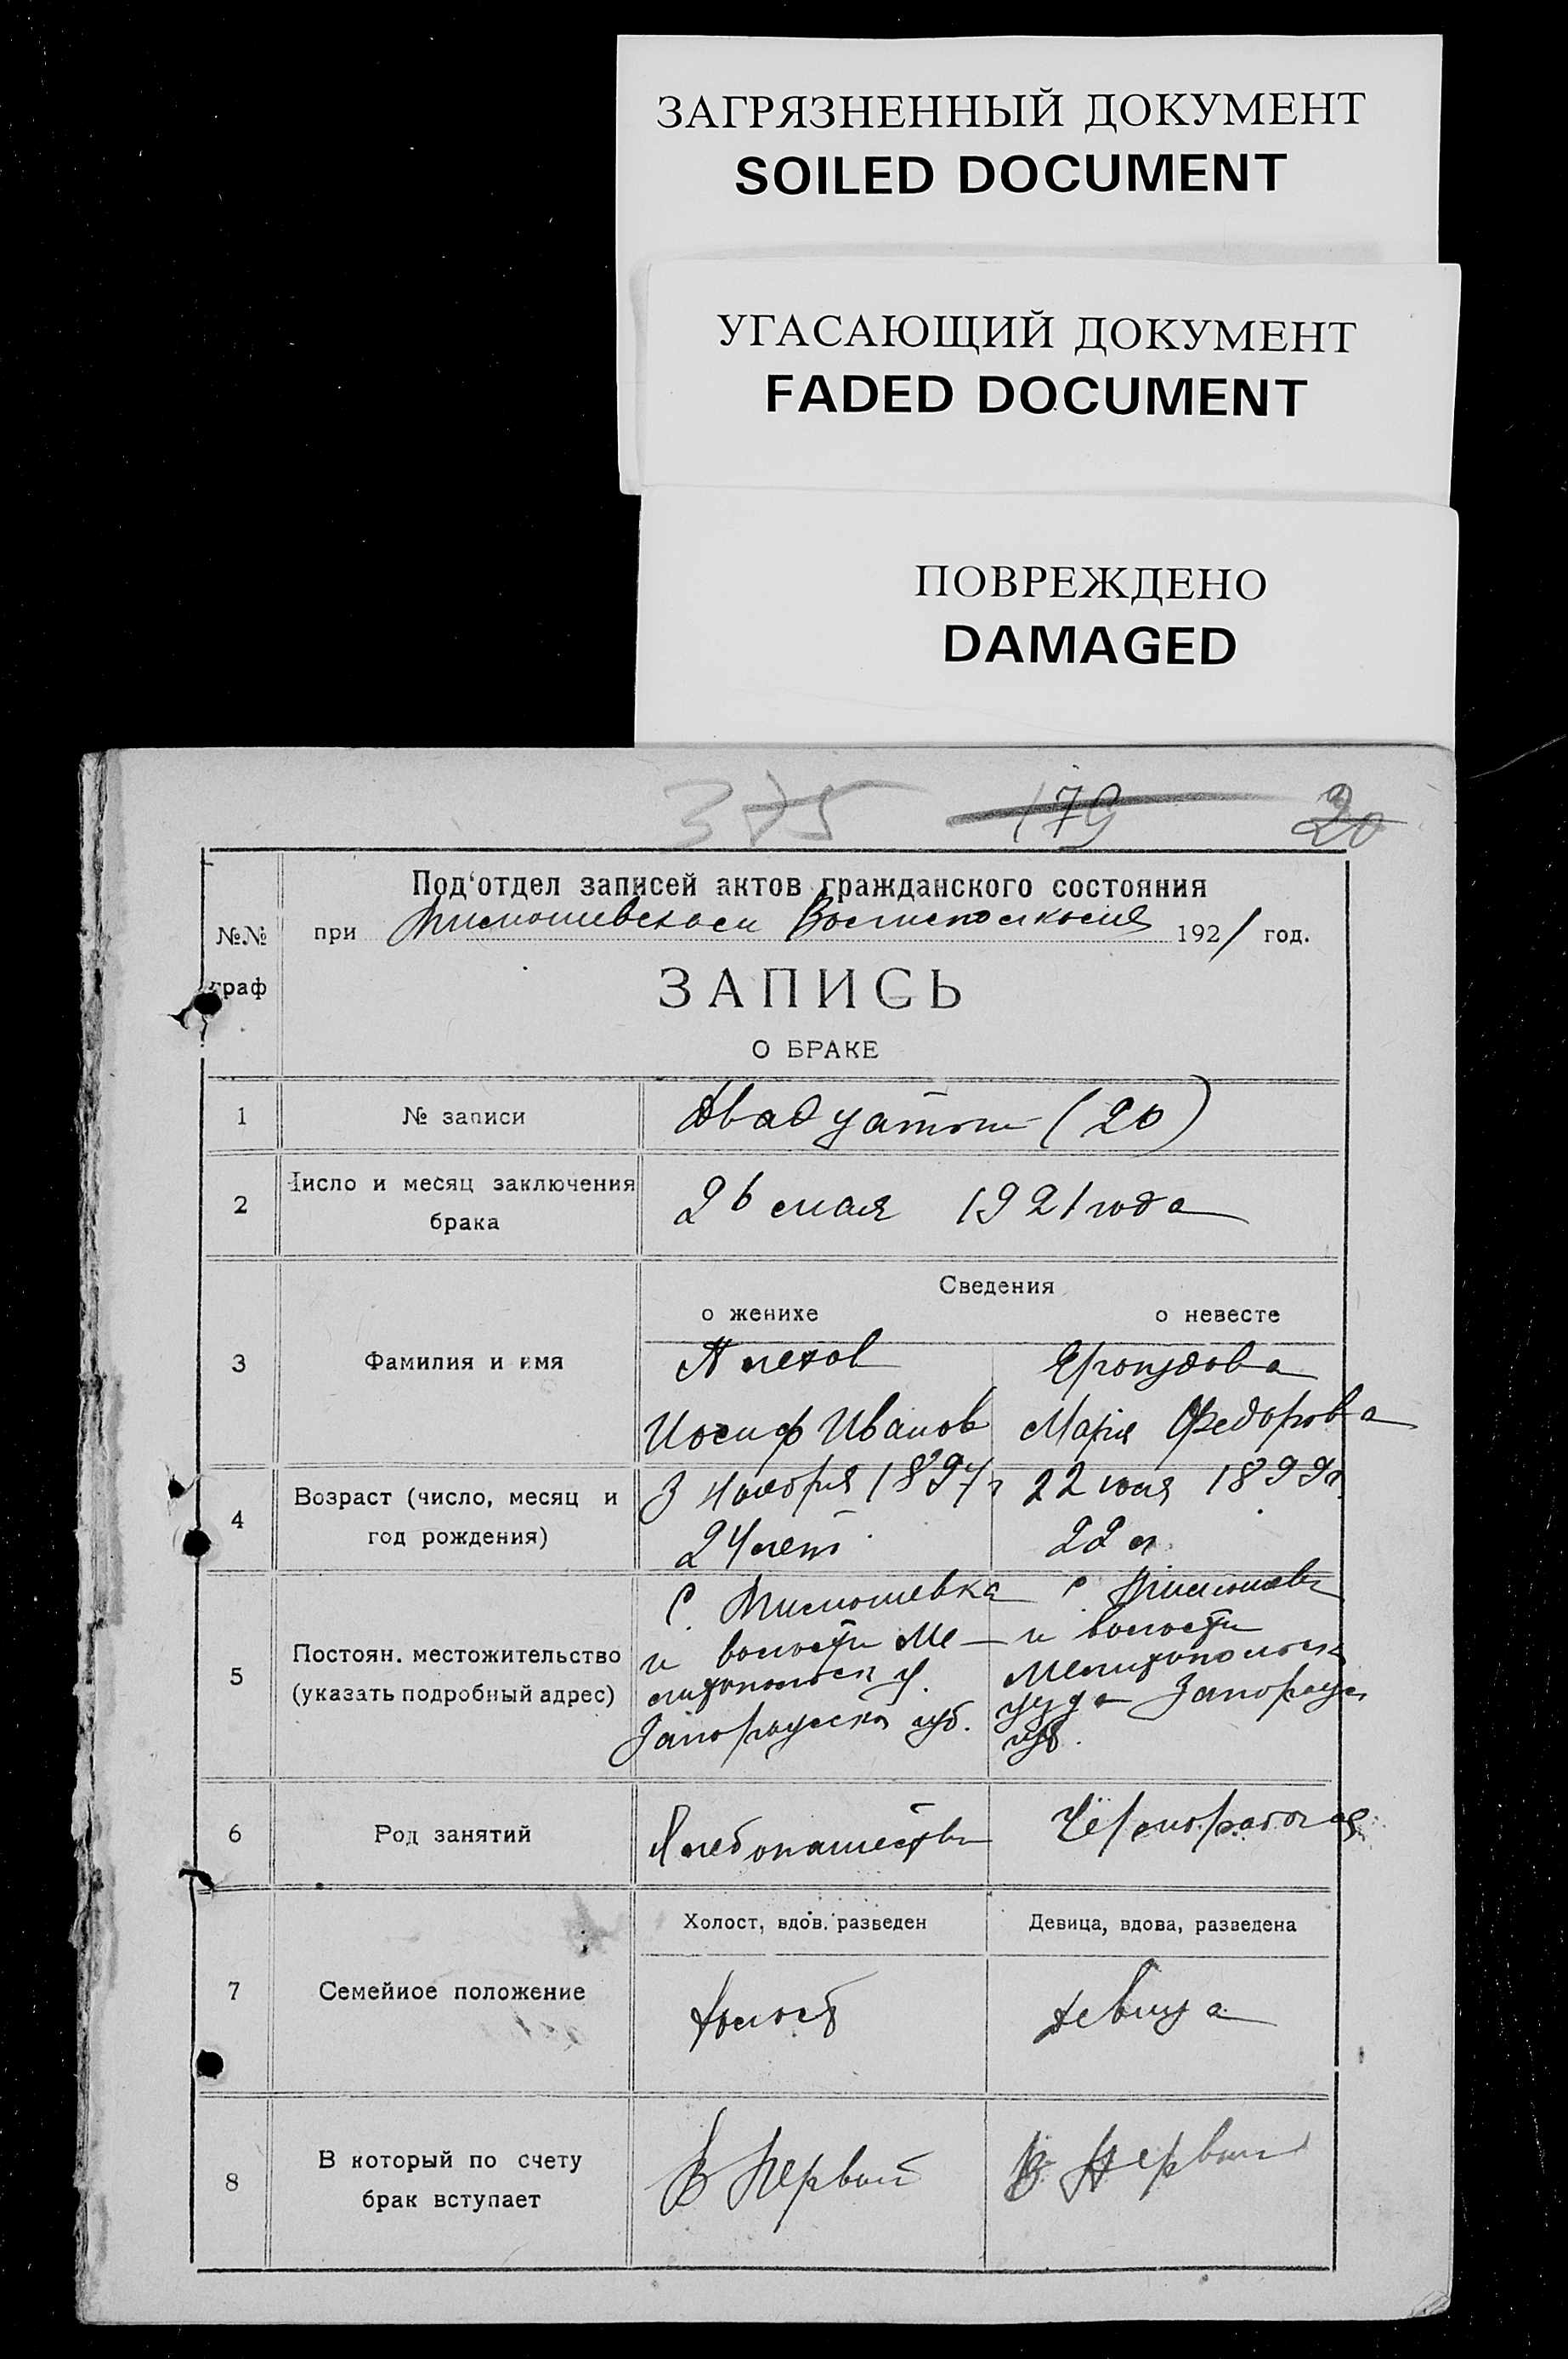 ЗАГРЯЗНЕННЫЙ ДОКУМЕНТ
SOILED DOCUMENT
УГАСАЮЩИЙ ДОКУМЕНТ
FADED DOCUMENT
ПОВРЕЖДЕНО
DAMAGED
375 179 20
Под‘отдел записей актов гражданского состояния
№№ при Тимошевском 1921 год.
граф
ЗАПИСЬ
О БРАКЕ
1 № записи Двадцатый (20)
2 Число и месяц заключения брака 26 мая 1921 года
Сведения
о женихе о невесте
3 Фамилия и имя
Иосиф Иванов Мария Федорова
4 Возраст (число, месяц и год рождения) 3 ноября 1897 г 22 1899 г.
24 лет 22 л.
5 Постоян. местожительство (указать подробный адрес)
С. Тимошевка с. Тимошевк
и волости Ме- и волости
литопольск у. Мелитопольск
Запорожской губ. уезда Запорож
губ.
6 Род занятий Хлебопашество Чернорабочая
Холост, вдов. разведен Девица, вдова, разведена
7 Семейное положение Холост Девица
8 В который по счету брак вступает В Первый В Первый